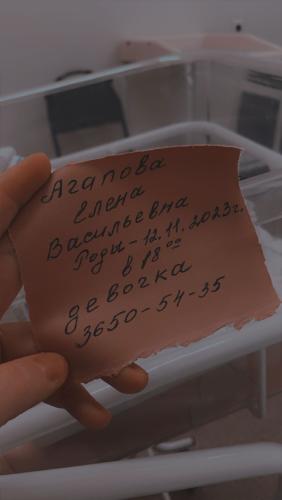 Агапова
Елена
Васильевна
Роды - 12.11.2023г.
в 18 00
девочка
3650-54-35